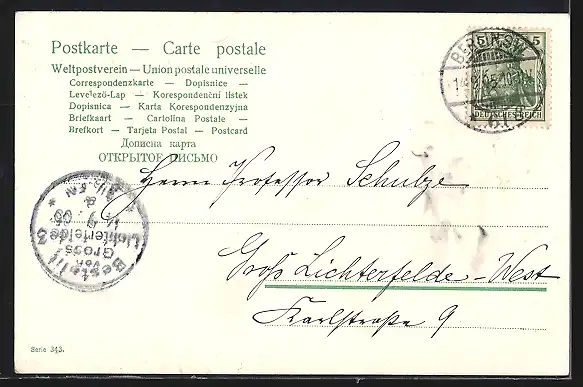 Postkarte — Carte postale
Weltpostverein — Union postale universelle
Correspondenzkarte — Dopisnice —
Levelező-Lap — Korespondenční listek
Dopisnica — Karta Korespondenzyjna
Briefkaart — Cartolina Postale —
Brefkort — Tarjeta Postal — Postcard
Дописна карта
ОТКРЫТОЕ ПИСЬМО
BERLIN S.W.
5
DEUTSCHES REICH
Herrn Professor Schulze
Groß Lichterfelde-West
Karlstraße 9
Bestellt
Gross
Lichterfelde 3
Serie 343.